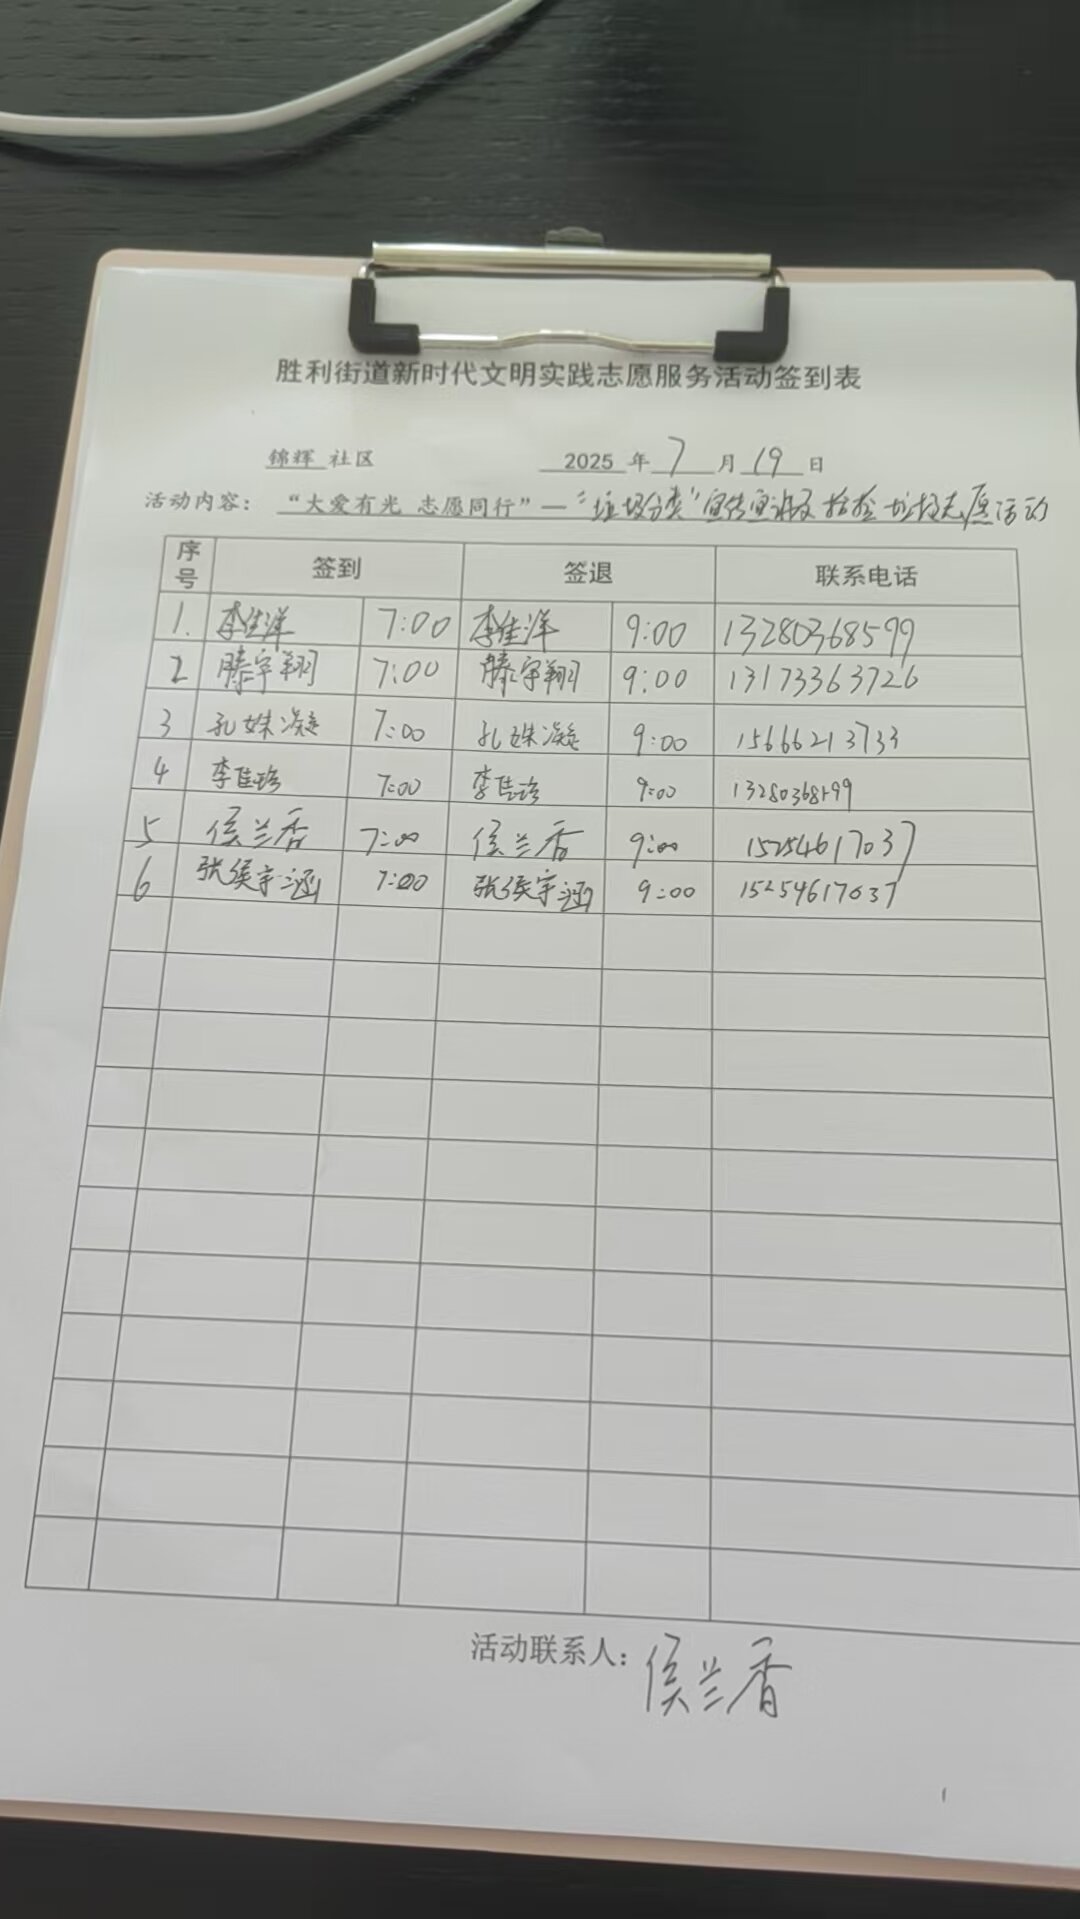 胜利街道新时代文明实践志愿服务活动签到表
锦辉 社区 2025 年 7 月 19 日
活动内容： “大爱有光 志愿同行”—“垃圾分类”宣传宣讲及捡垃圾志愿活动
序号 签到 签退 联系电话
1. 李佳洋 7:00 李佳洋 9:00 13280368599
2 滕宇翔 7:00 滕宇翔 9:00 13173363726
3 孔姝凝 7:00 孔姝凝 9:00 15666213733
4 李佳 7:00 李佳 9:00 13280368599
5 侯兰香 7:00 侯兰香 9:00 15254617037
6 张侯宇涵 7:00 张侯宇涵 9:00 15254617037
活动联系人：侯兰香